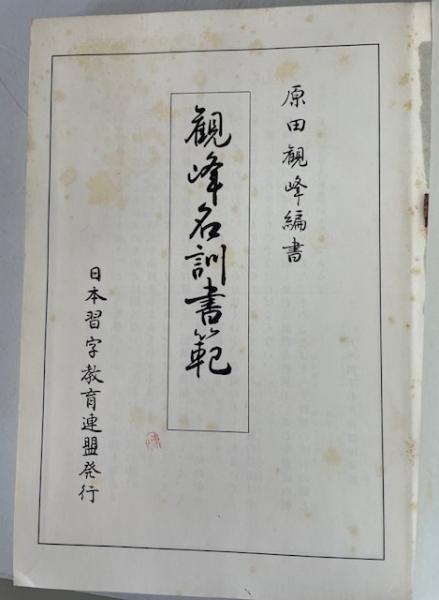 原田観峰編書
観峰名訓書範
日本習字教育連盟発行